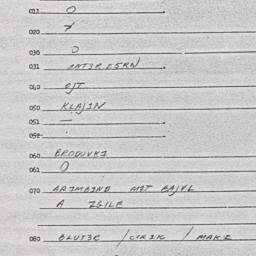 011 O
020 X
030 O
031 ANT3RESRN
040 EJT
050 KLAJIN
051 —
052 .
060 BRODUVKI
061 O
070 ARIMBIND MIT BAJVL
A ZGILE
080 BLUT3R / CIRIK / MAKI